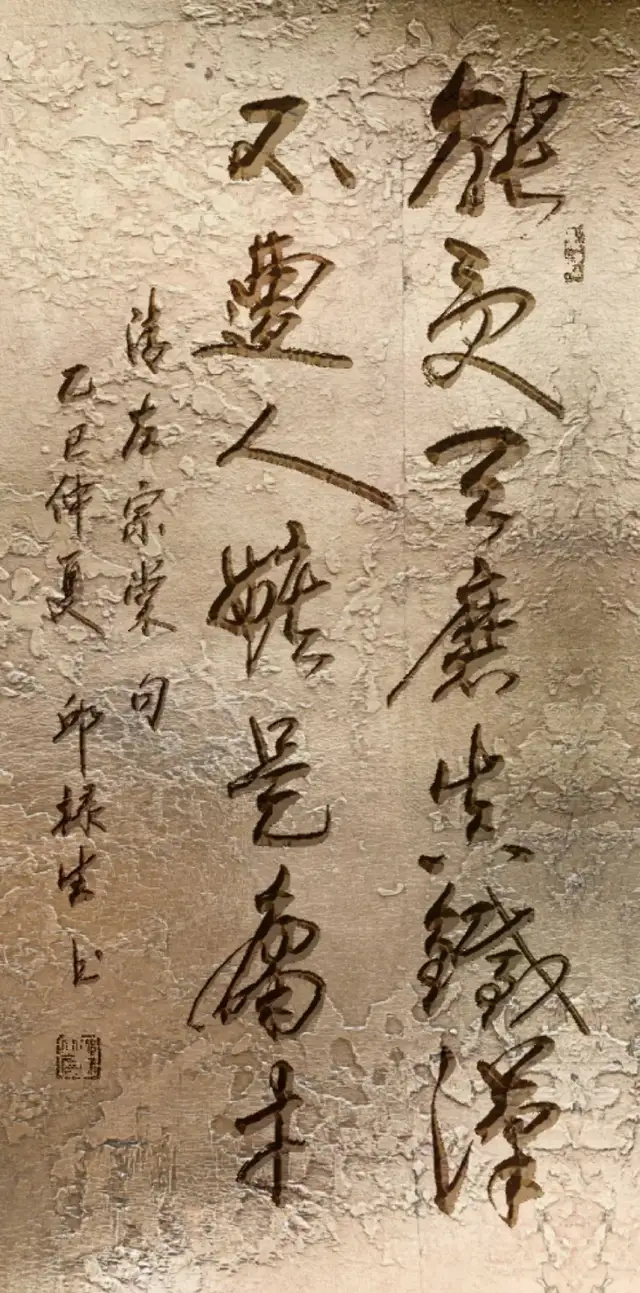 能受天磨真鐵漢
不遭人嫉是庸才
清左宗棠句
乙巳仲夏 邱禄生书